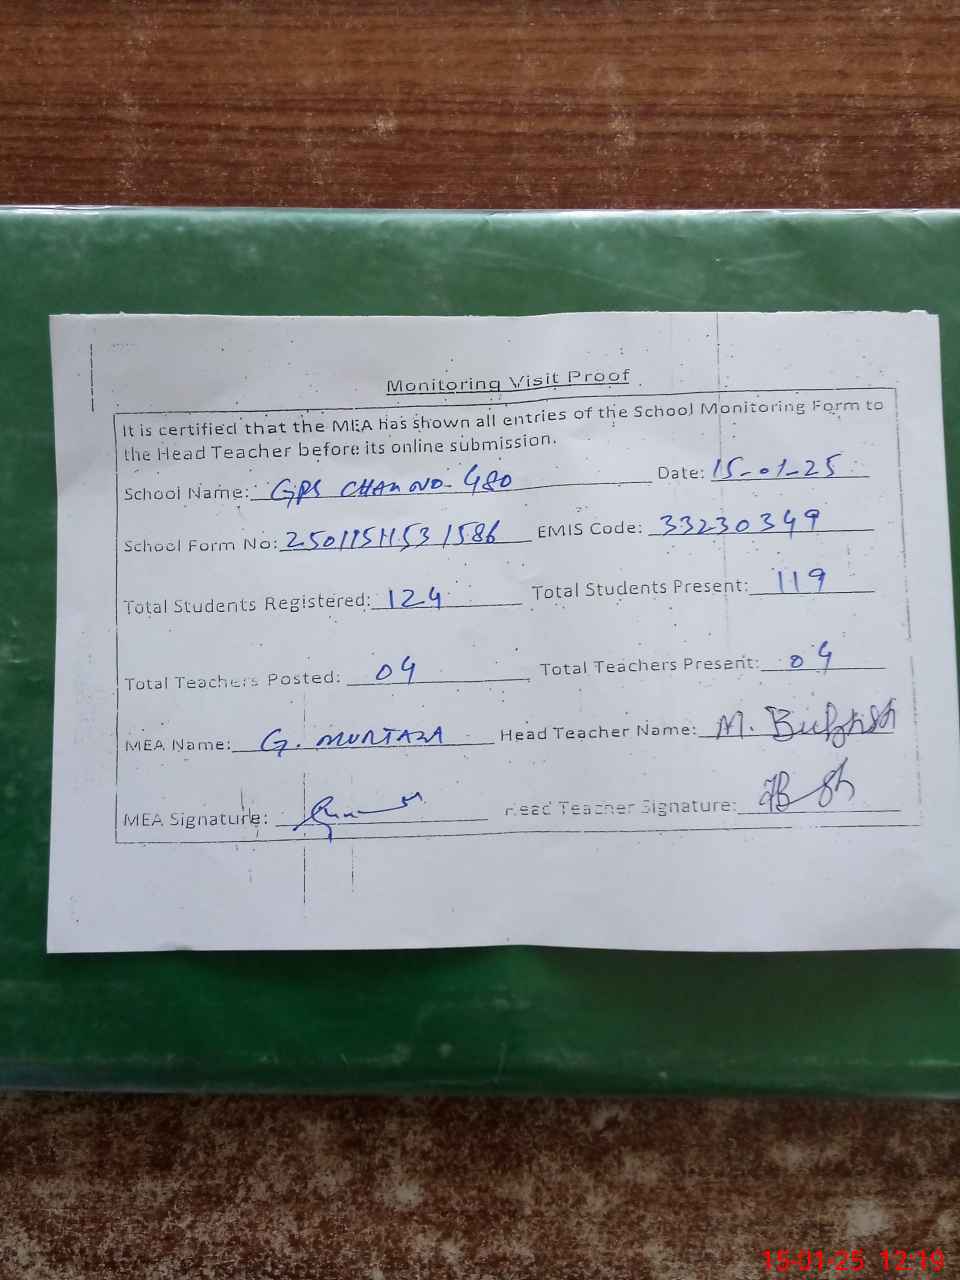 Monitoring Visit Proof
It is certified that the MEA has shown all entries of the School Monitoring Form to
the Head Teacher before its online submission.
School Name: GPS CHAK NO. 480 Date: 15-01-25
School Form No: 25011511531586 EMIS Code: 33230349
Total Students Registered: 124 Total Students Present: 119
Total Teachers Posted: 04 Total Teachers Present: 04
MEA Name: G. MURTAZA Head Teacher Name: M.
MEA Signature: Head Teacher Signature:
15-01-25 12:19